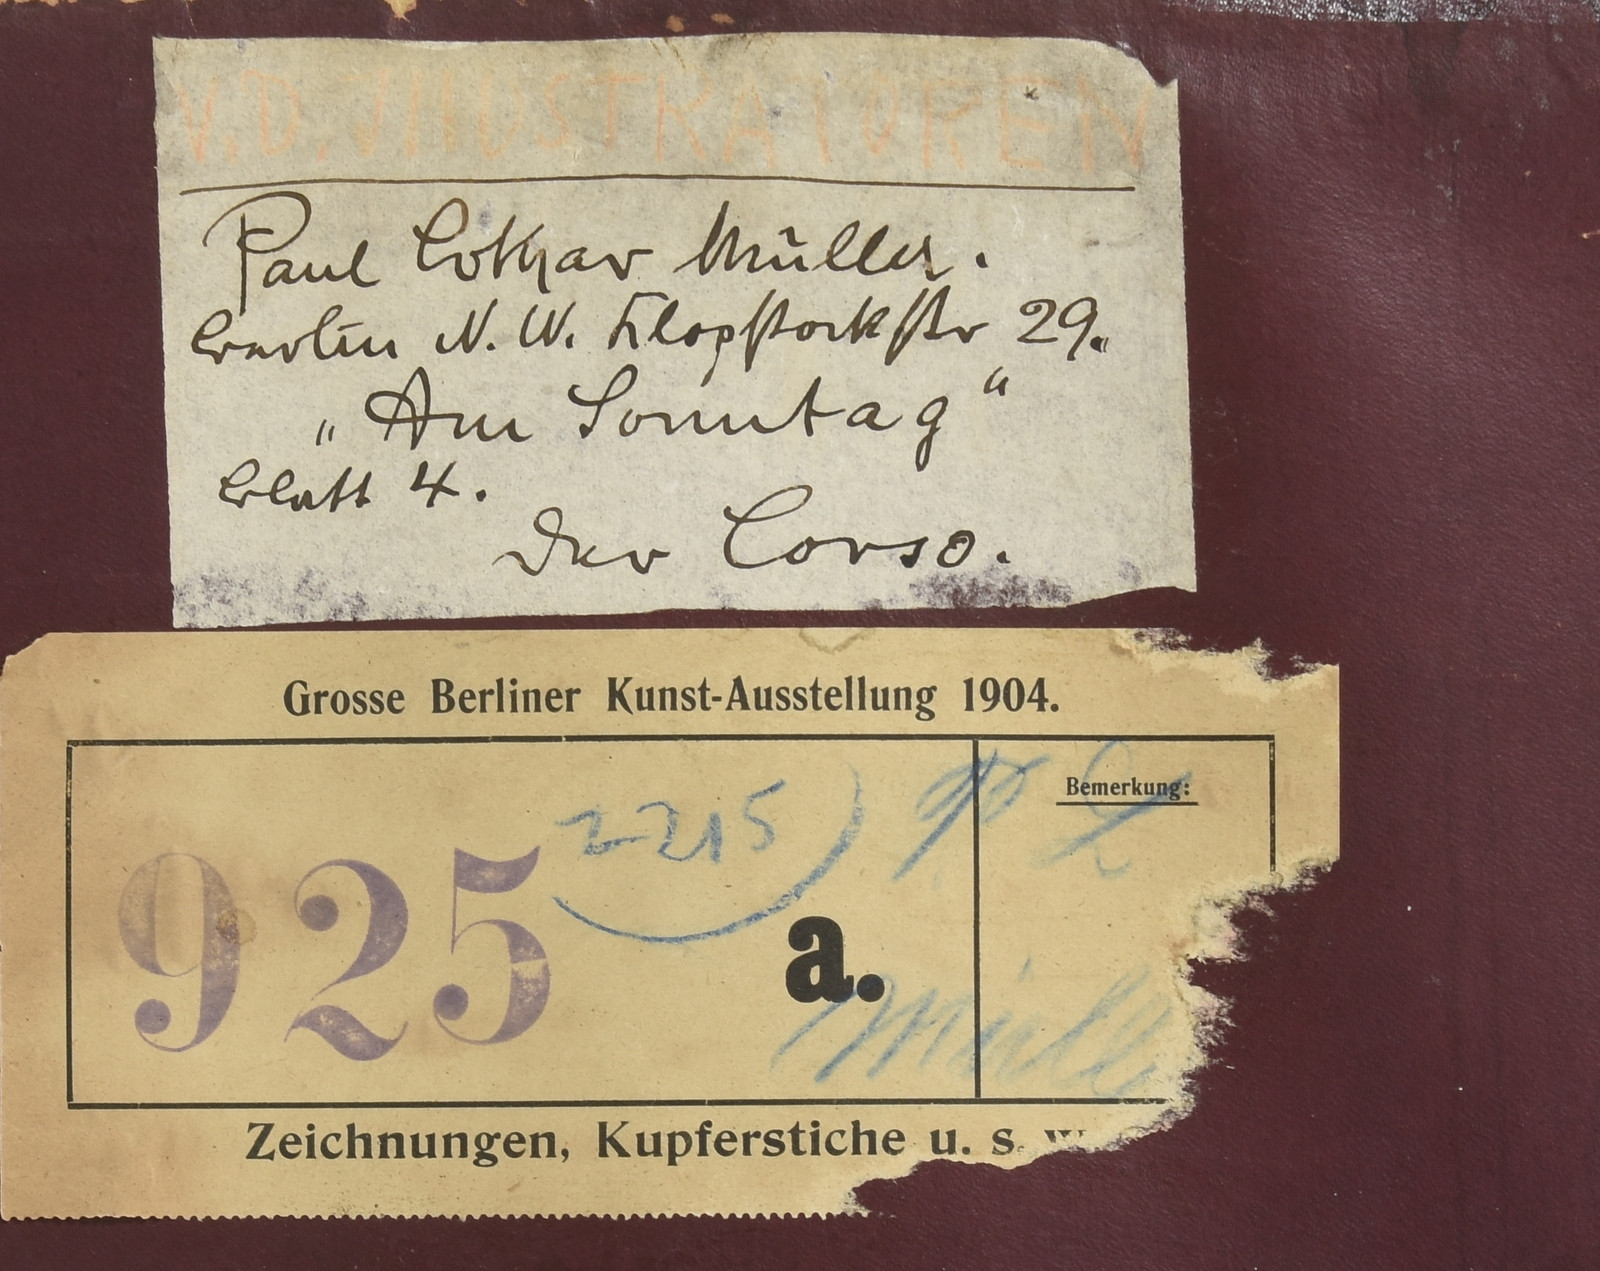 V.D. JLLUSTRATOREN
Paul Lothar Müller.
Berlin N.W. Klopstockstr 29.
„Am Sonntag“
Blatt 4.
Der Corso.
Grosse Berliner Kunst-Ausstellung 1904.
Bemerkung:
2215
925
a.
Müll
Zeichnungen, Kupferstiche u. s. w